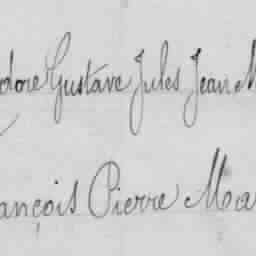 dore Gustave Jules Jean M
ançois Pierre Ma